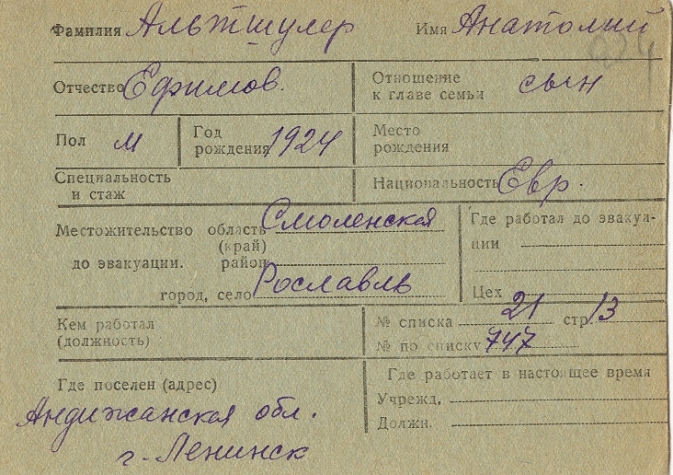 Фамилия Альтшулер Имя Анатолий
Отчество Ефимов. Отношение
к главе семьи сын
Пол м Год
рождения 1924 Место
рождения
Специальность
и стаж Национальность Евр.
Местожительство область Смоленская Где работал до эвакуа-
(край) ции
до эвакуации. район
город, село Рославль Цех
Кем работал
(должность) № списка 21 стр. 13
№ по списку 747
Где поселен (адрес) Где работает в настоящее время
Андижанская обл. Учрежд.
г. Ленинск Должн.